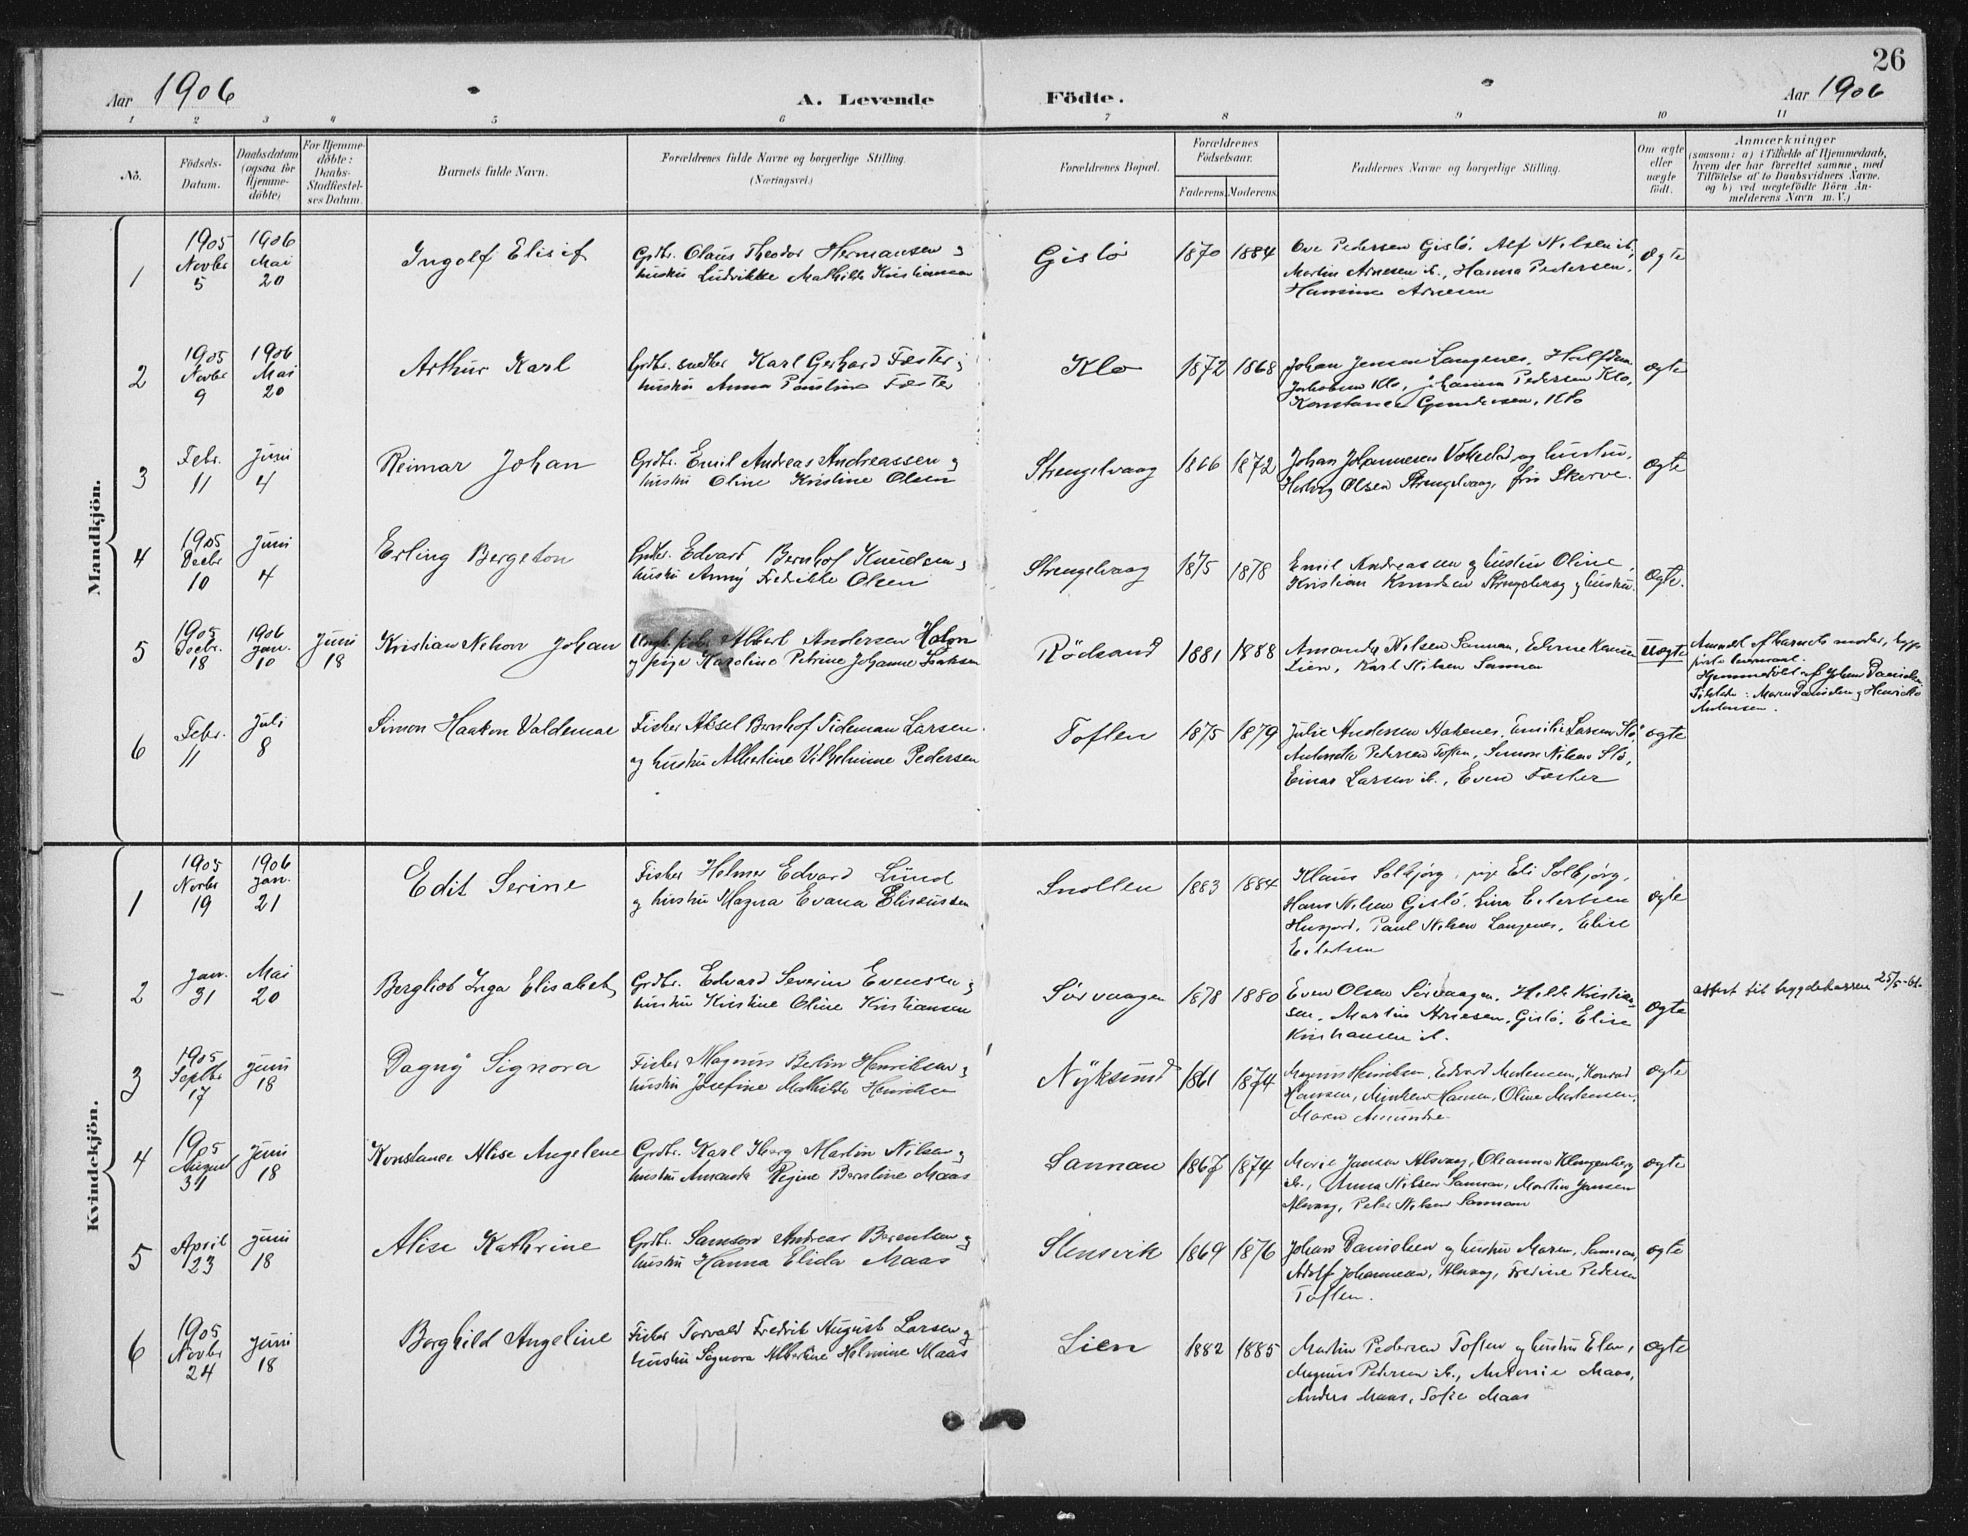 26
Aar 1906
A. Levende
Födte.
Aar 1906
1 2 3 4 5 6 7 8 9 10 11
No.
Födsels-Datum.
Daabsdatum (ogsaa for Hjemme-döbte)
For Hjemme-döbte: Daabs-Stadfæstel-ses Datum.
Barnets fulde Navn.
Forældrenes fulde Navne og borgerlige Stilling. (Næringsvei.)
Forældrenes Bopæl.
Forældrenes Födselsaar.
Faderens. Moderens.
Faddernes Navne og borgerlige Stilling.
Om ægte eller uægte födt.
Anmærkninger
(saasom: a) i Tilfælde af Hjemmedaab, hvem der har forrettet samme, med Tilföielse af to Daabsvidners Navne, og b) ved uægtefödte Börn Anmelderens Navn m. V.)
Mandkjön.
1 1905 Novbr 5 1906 Mai 20 Ingolf Elisif
Grdbr. Olaus Theodor Hermansen og
hustru Ludvikke Mathilde Kristiansen
Gislö 1870 1884
Ove Pedersen Gislö, Alf Nilsen ib,
Martin Arnesen ib., Hanna Pedersen,
Hansine Arnesen
ægte
2 1905 Novbr 9 1906 Mai 20 Arthur Karl
Grdbr. snedker Karl Gerhard Fæster og
hustru Anna Pauline Fæster
Klo 1872 1868
Johan Jensen Langenes, Halfdan
Jakobsen Klo, Johanna Pedersen Klo,
Konstance Gundersen, Klo
ægte
3 Febr. 11 Juni 4 Reimar Johan
Grdbr. Emil Andreas Andreassen og
hustru Oline Kristine Olsen
Strengelvaag 1866 1872
Johan Johannesen og hustru,
Olsen Strengelvaag, frk Skerve.
ægte
4 1905 Decbr 10 Juni 4 Erling Bergeton
Grdbr. Edvard Bernhof Knudsen og
hustru Anny Fredrikke Olsen
Strengelvaag 1875 1878
Emil Andreassen og hustru Oline,
Kristian Knudsen Strengelvaag og hustru.
ægte.
5 1905 Decbr 18 1906 Jan. 10 Juni 18 Kristian Nehow Johan
Albert Andersen
og pige Karoline Petrine Johanne
Rödsand 1881 1888
Amanda Nilsen Sannan,
Lien, Karl Nilsen Sannan
uægte
Anmeldt af barnets moder,
Hjemmedöbt af Johan Danielsen
: Maren Danielsen og Henrikke
Andersen.
6 Febr. 11 Juli 8 Simon Haakon Valdemar
Fisker Aksel Bernhof Tideman Larsen
og hustru Albertine Vilhelmine Pedersen
Toften 1875 1879
Julie Andersen, Emilie Larsen Stö,
Antonette Pedersen Toften, Simon Nilsen Stö,
Einar Larsen ib., Even Fæster
ægte
Kvindekjön.
1 1905 Novbr 19 1906 Jan. 21 Edit Serine
Fisker Helmer Edvard Lund
og hustru Magna Evana Eliseussen
Smollen 1883 1884
Klaus Solbjörg, pige Eli Solbjörg,
Hans Nilsen Gislö, Lina Eilertsen
Husjord, Paul Nilsen Langenes, Elise
Eilertsen
ægte
2 Jan. 31 Mai 20 Bergliot Inga Elisabet
Grdbr. Edvard Severin Evensen og
hustru Kristine Oline Kristiansen
Sörvaagen 1878 1880
Even Olsen Sörvaagen, Hilda Kristian-
sen, Martin Arnesen, Gislö, Elise
Kristiansen ib.
ægte
attest til trygdekassen 25/5-61.
3 1905 Septbr 17 Juni 18 Dagny Signora
Fisker Magnus Berlin Henriksen og
hustru Josefine Mathilde Henriksen
Nyksund 1861 1874
Magnus Henriksen, Edvard Mortensen, Konrad
Hansen, Hansen, Oline Mortensen,
Maren
ægte
4 1905 August 31 Juni 18 Konstance Alise Angelene
Grdbr. Karl Iberg Martin Nilsen og
hustru Amanda Regine Berntine Maas
Sannan 1867 1874
Marie Jansen Alsvaag, Oleanna Klingenberg
ib., Anna Nilsen Sannan, Martin Jansen
Alsvaag, Peder Nilsen Sannan
ægte
5 April 23 Juni 18 Alise Kathrine
Grdbr. Samson Andreas Berentsen og
hustru Hanna Elida Maas
Stensvik 1869 1876
Johan Danielsen og hustru Maren, Sannan,
Adolf Johannesen, Alsvaag, Fredine Pedersen
Toften.
ægte
6 1905 Novbr 24 Juni 18 Borghild Angeline
Fisker Torvald Fredrik August Larsen og
hustru Signora Albertine Helmine Maas
Lien 1882 1885
Martin Pedersen Toften og hustru Elen,
Magnus Pedersen ib., Antonie Maas,
Anders Maas, Sofie Maas
ægte